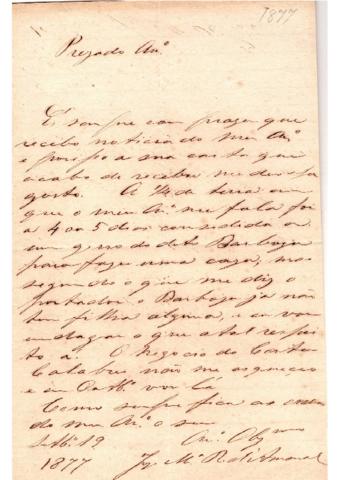 1877
Prezado Am.º
É sempre com prazer que
recebo noticia do meu Am.º
e por isso a sua carta que
acabo de receber me deu
gosto. A 1/4 de terra em
que o meu Am.º me fala foi
a 4 ou 5 dias concedida a
um genro do dito Barboza
para fazer uma caza, mas
segundo o que me diz o
portador o Barboza já não
tem filha alguma, e eu vou
indagar o que a tal respei
to á. O Negocio do
não me esqueceo
e em vou lá
Como sempre fica as
do meu Am.º o seu
19 Am.º
1877